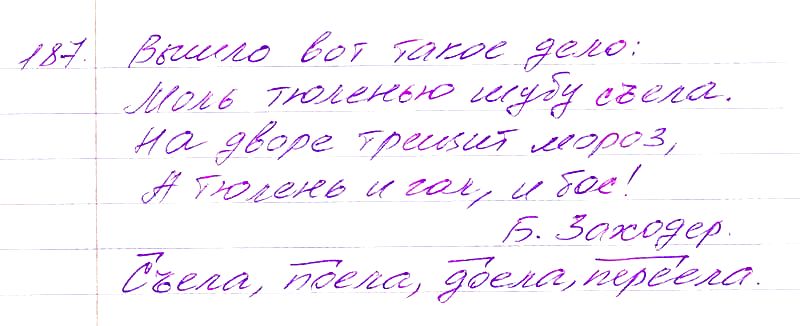 187. Вышло вот такое дело:
Моль тюленью шубу съела.
На дворе трещит мороз,
А тюлень и гол, и бос!
Б. Заходер.
Съела, поела, доела, переела.